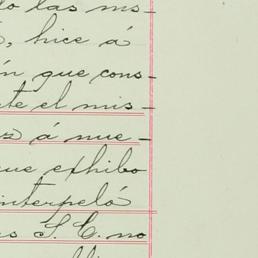 o las ms-
, hice á
n que cons-
te el mis-
z á nue-
ue exhibo
interpeló
s S. E. no